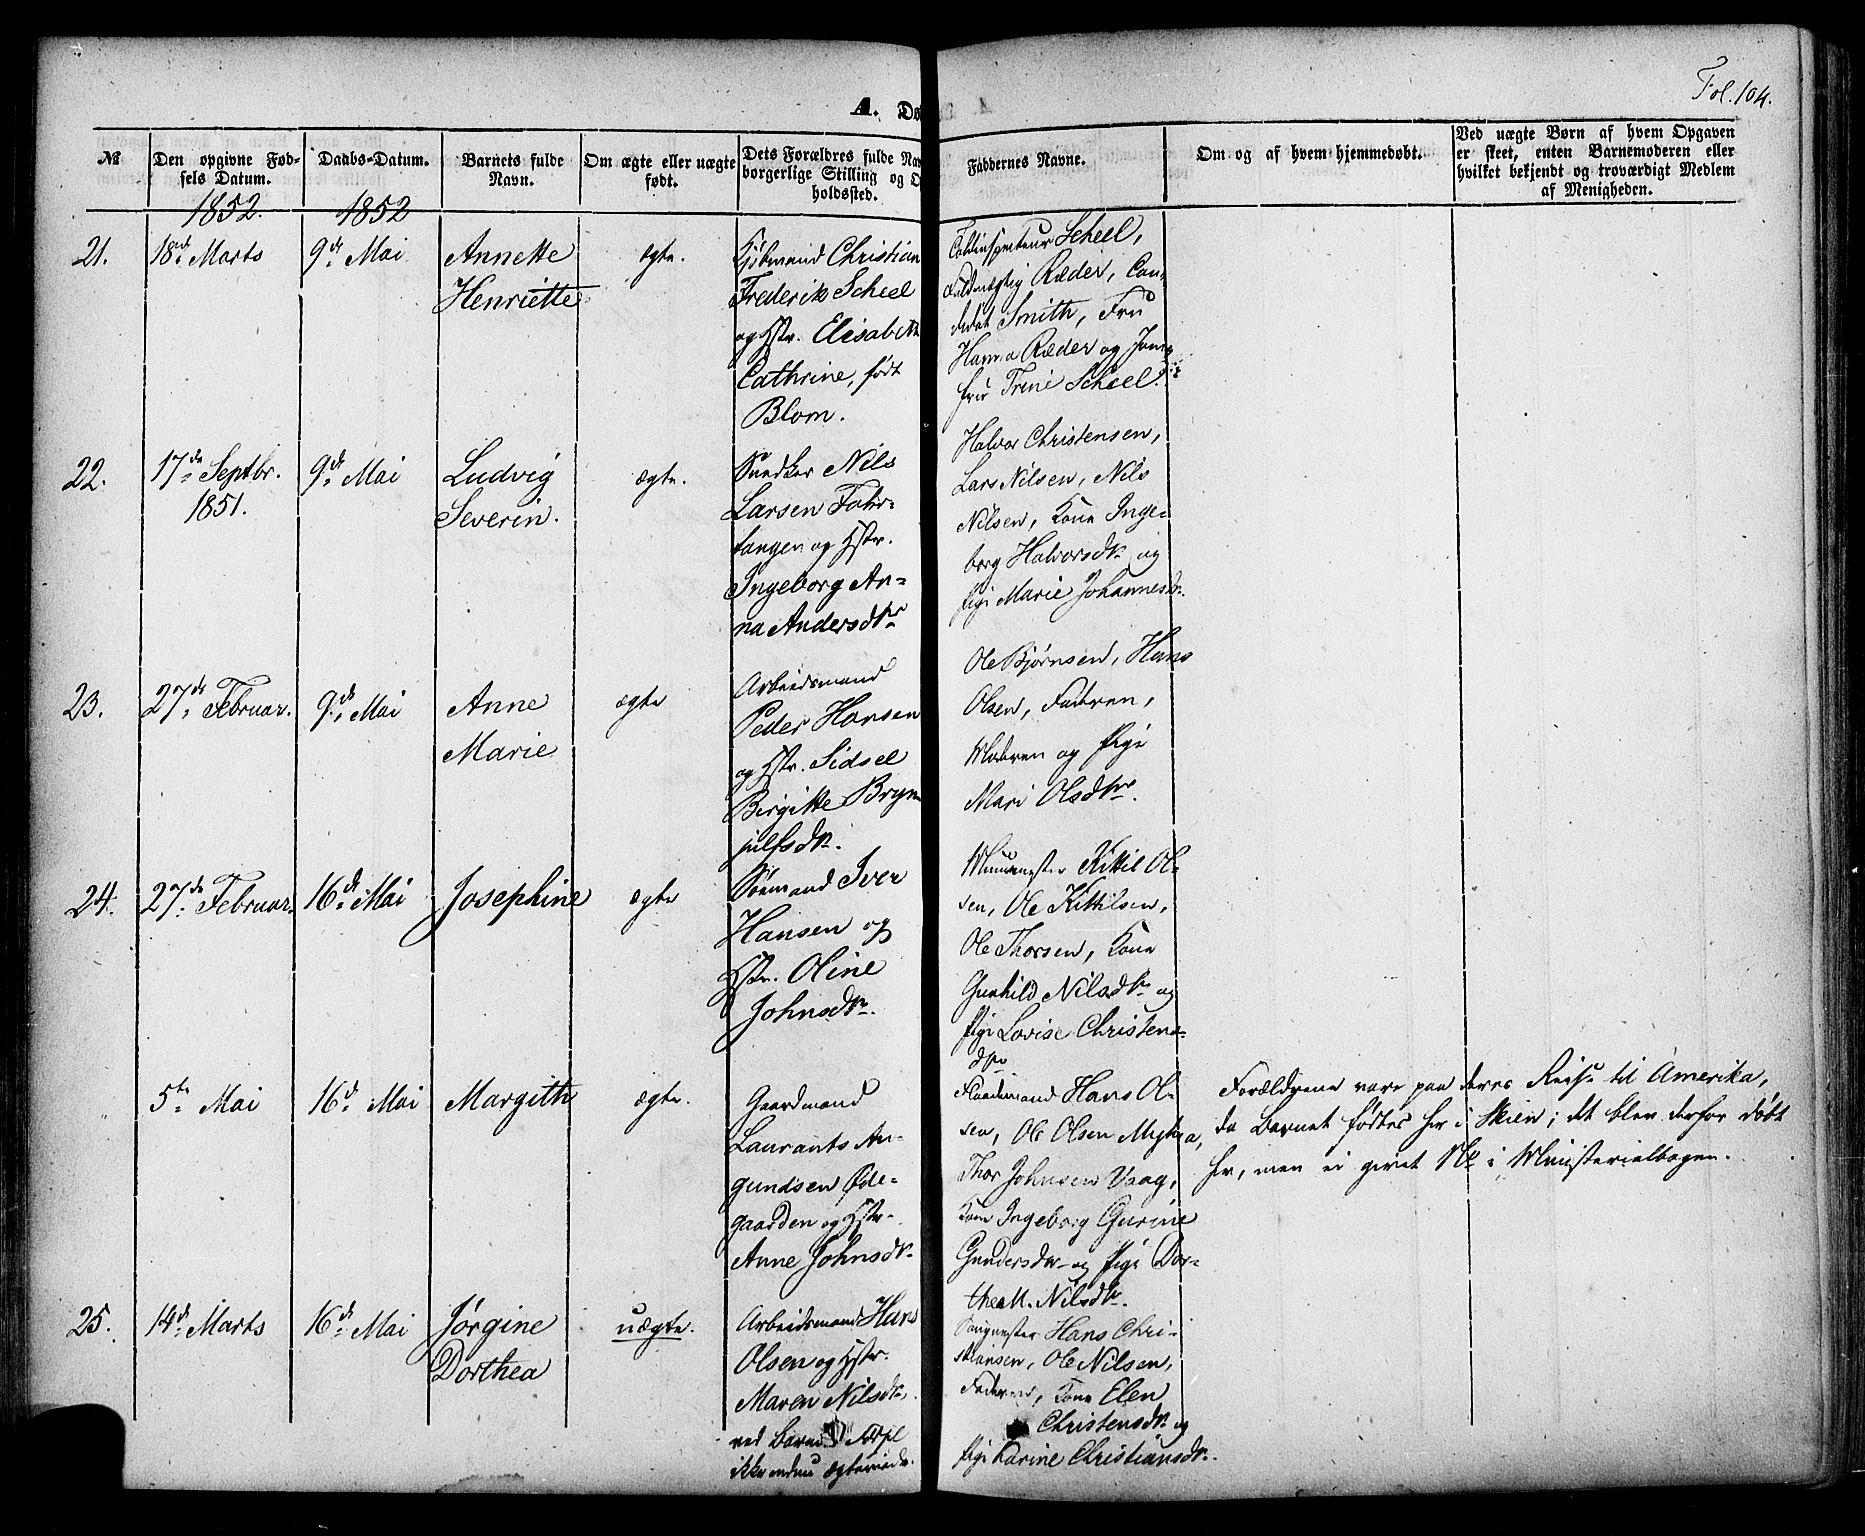 Fol. 104.
A. Dø
№
Den opgivne Fød-
sels Datum.
Daabs-Datum.
Barnets fulde
Navn.
Om ægte eller uægte
født.
Dets Forældres fulde Nav
borgerlige Stilling og O
holdssted.
Faddernes Navne.
Om og af hvem hjemmedøbt.
Ved uægte Børn af hvem Opgaven
er skeet, enten Barnemoderen eller
hvilket bekjendt og troværdigt Medlem
af Menigheden.
1852.
1852
21.
18de Marts
9de Mai
Annette
Henriette
ægte.
Kjøbmand Christian
Frederik Scheel
og Hstr. Elisabeth
Cathrine, født
Blom.
Toldinspecteur Scheel,
Fuldmægtig Ræder, Can-
didat Smith, Fru
Hanna Ræder og Jom-
fru Trine Scheel.
22.
17de Septbr.
1851.
9de Mai
Ludvig
Severin.
ægte.
Snedker Nils
Larsen Fahr-
tangen og Hstr.
Ingeborg An-
na Andersdtr
Halvor Christensen,
Lars Nilsen, Nils
Nilsen, Kone Inge-
borg Halvorsdtr og
Pige Marie Johannesdtr.
23.
27de Februar.
9de Mai
Anne
Marie
ægte
Arbeidsmand
Peder Hansen
og Hstr. Sidsel
Birgitte Bryn
julfsdtr.
Ole Bjørnsen, Hans
Olsen, Faderen,
Moderen og Pige
Mari Olsdtr.
24.
27de Februar.
16de Mai
Josephine
ægte
Sømand Iver
Hansen og
Hstr. Oline
Johnsdtr.
Muurmester Kittil Ol-
sen, Ole Kittilsen,
Ole Thorsen, Kone
Gunhild Nilsdtr og
Pige Lovise Christens-
dtr
5te Mai
16de Mai
Margith
ægte.
Gaardmand
Laurants An-
gundsen Øde-
gaarden og Hstr.
Anne Johnsdtr
Gaardmand Hans Ol-
sen, Ole Olsen
Thor Johnsen Vaag,
Kone Ingeborg Gurine
Gundersdtr og Pige Dor-
thea M. Nilsdtr.
Forældrene vare paa deres Reise til Amerika,
da Barnet fødtes her i Skien; det blev derfor døbt
her, men ei givet No i Ministerialbogen.
25.
14de Marts
16de Mai
Jørgine
Dorthea
uægte.
Arbeidsmand Hans
Olsen og Hstr.
Maren Nilsdtr,
ved Barnets Fødsel
ikke endnu ægteviede.
Hans Chri-
stiansen, Ole Nilsen,
Faderen, Kone Elen
Christensdtr og
Pige Karine Christiansdtr.